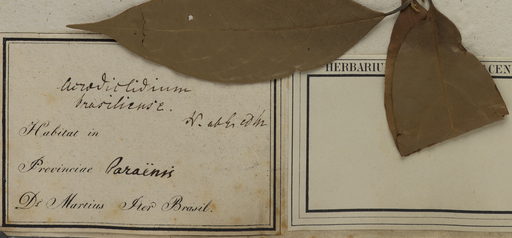 HERBARIU CEN
Acrodiclidium
brasiliense.
N. ab E. 
Habitat in
Provinciae Paraënsis
Dr Martius Iter Brasil.